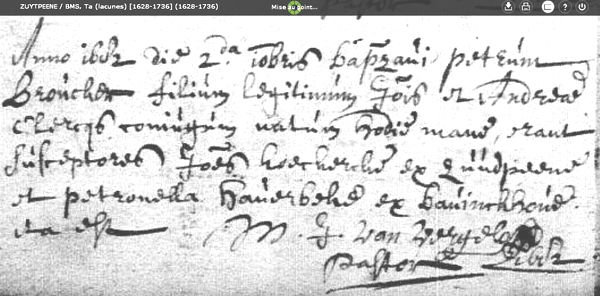 ZUYTPEENE / BMS, Ta (lacunes) [1628-1736] (1628-1736) Mise au point...
Anno 1682 die 2da 10bris baptizavi petrum
Broucker filium legitimum Jois et Andreae
Clercqs conjugum natum hodie mane, erant
susceptores Joes
et petronella Haverbeke ex Bavinckhove.
ita est M. J. van
Pastor 1682